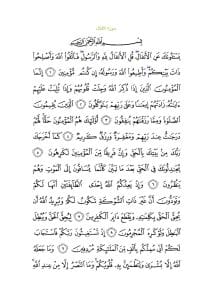 سورة الأنفال
بسم الله الرحمن الرحيم
يَسْـَٔلُونَكَ عَنِ ٱلْأَنفَالِ قُلِ ٱلْأَنفَالُ لِلَّهِ وَٱلرَّسُولِ فَٱتَّقُوا۟ ٱللَّهَ وَأَصْلِحُوا۟
ذَاتَ بَيْنِكُمْ وَأَطِيعُوا۟ ٱللَّهَ وَرَسُولَهُۥٓ إِن كُنتُم مُّؤْمِنِينَ ١ إِنَّمَا
ٱلْمُؤْمِنُونَ ٱلَّذِينَ إِذَا ذُكِرَ ٱللَّهُ وَجِلَتْ قُلُوبُهُمْ وَإِذَا تُلِيَتْ عَلَيْهِمْ
ءَايَـٰتُهُۥ زَادَتْهُمْ إِيمَـٰنًا وَعَلَىٰ رَبِّهِمْ يَتَوَكَّلُونَ ٢ ٱلَّذِينَ يُقِيمُونَ
ٱلصَّلَوٰةَ وَمِمَّا رَزَقْنَـٰهُمْ يُنفِقُونَ ٣ أُو۟لَـٰٓئِكَ هُمُ ٱلْمُؤْمِنُونَ حَقًّا لَّهُمْ
دَرَجَـٰتٌ عِندَ رَبِّهِمْ وَمَغْفِرَةٌ وَرِزْقٌ كَرِيمٌ ٤ كَمَآ أَخْرَجَكَ
رَبُّكَ مِنۢ بَيْتِكَ بِٱلْحَقِّ وَإِنَّ فَرِيقًا مِّنَ ٱلْمُؤْمِنِينَ لَكَـٰرِهُونَ ٥
يُجَـٰدِلُونَكَ فِى ٱلْحَقِّ بَعْدَ مَا تَبَيَّنَ كَأَنَّمَا يُسَاقُونَ إِلَى ٱلْمَوْتِ وَهُمْ
يَنظُرُونَ ٦ وَإِذْ يَعِدُكُمُ ٱللَّهُ إِحْدَى ٱلطَّآئِفَتَيْنِ أَنَّهَا لَكُمْ
وَتَوَدُّونَ أَنَّ غَيْرَ ذَاتِ ٱلشَّوْكَةِ تَكُونُ لَكُمْ وَيُرِيدُ ٱللَّهُ أَن
يُحِقَّ ٱلْحَقَّ بِكَلِمَـٰتِهِۦ وَيَقْطَعَ دَابِرَ ٱلْكَـٰفِرِينَ ٧ لِيُحِقَّ ٱلْحَقَّ وَيُبْطِلَ
ٱلْبَـٰطِلَ وَلَوْ كَرِهَ ٱلْمُجْرِمُونَ ٨ إِذْ تَسْتَغِيثُونَ رَبَّكُمْ فَٱسْتَجَابَ
لَكُمْ أَنِّى مُمِدُّكُم بِأَلْفٍ مِّنَ ٱلْمَلَـٰٓئِكَةِ مُرْدِفِينَ ٩ وَمَا جَعَلَهُ
ٱللَّهُ إِلَّا بُشْرَىٰ وَلِتَطْمَئِنَّ بِهِۦ قُلُوبُكُمْ وَمَا ٱلنَّصْرُ إِلَّا مِنْ عِندِ ٱللَّهِ